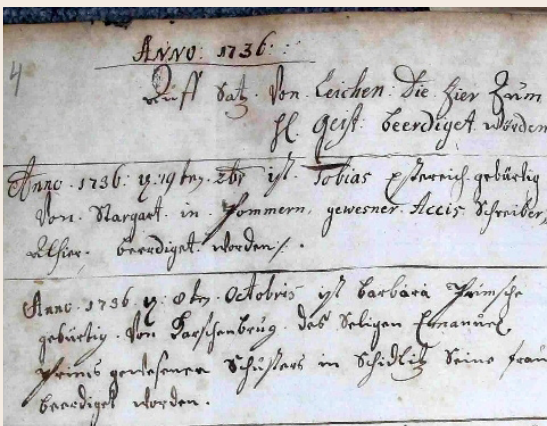 4
ANNO: 1736:
Auff Satz. Von Leichen. Die hier Zum
Hl. Geist. beerdiget. worden
Anno. 1736: 19ten ist. Tobias gebürtig
Von. Stargart. in. Pommern, gewesner. Accis Schreiber,
Alhier. beerdiget worden/.
Anno. 1736 8ten. Octobris ist barbara
gebürtig. Von des Seeligen Emanuel
gewesener Schusters in Schidlitz Seine frau
beerdiget worden.